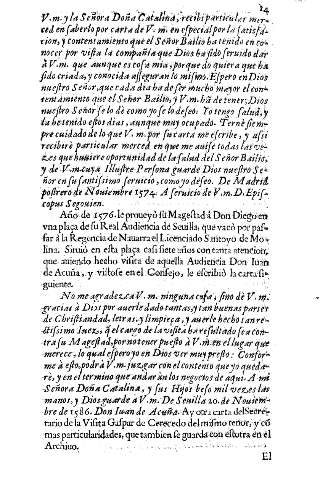 14
V.m. y la Señora Doña Catalina, recibi particular mer-
ced en saberlo por carta de V.m. en especial por la satisfa-
cion, y contentamiento que el Señor Bailio ha tenido en co-
nocer por vista la compañia que Dios ha sido servido dar
à V.m. que aunque es cosa mia, porque do quiera que ha
sido criada, y conocida asseguran lo mismo. Espero en Dios
nuestro Señor, que cada dia ha de ser mucho mayor el con-
tentamiento que el Señor Bailio, y V.m. hã de tener. Dios
nuestro Señor se lo dè como yo se lo deseo. Yo tengo salud, y
la he tenido estos dias, aunque muy ocupado. Ternè siem-
pre cuidado de lo que V.m. por su carta me escribe, y assi
recibirè particular merced en que me avise todas las ve-
zes que huviere oportunidad de la salud del Señor Bailio,
y de V.m. cuya Illustre Persona guarde Dios nuestro Se-
ñor en su santissimo servicio, como yo deseo. De Madrid
postrero de Noviembre 1574. A servicio de V.m. D. Epis-
copus Segovien.
Año de 1576. le proveyó su Magestad à Don Diego en
vna plaça de su Real Audiencia de Sevilla, que vacò por pas-
sar à la Regencia de Navarra el Licenciado Santoyo de Mo-
lina. Sirviò en esta plaça casi siete años con tanta atencion,
que aviendo hecho visita de aquella Audiencia Don Iuan
de Acuña, y vistose en el Consejo, le escribiò la carta si-
guiente.
No me agradezca V.m. ninguna cosa, sino dè V.m.
gracias à Dios por averle dado tantas, y tan buenas partes
de Christiandad, letras, y limpieça, y averle hecho tan re-
ctissimo Iuez, que el cargo de la visita ha resultado sea con-
tra su Magestad, por no tener puesto à V.m. en el lugar que
merece, lo qual espero yo en Dios ver muy presto: Confor-
me à esto, podrà V.m. juzgar con el contento que yo queda-
rè, y en el termino que andaràn los negocios de aqui. A mi
Señora Doña Catalina, y sus Hijos beso mil vezes las
manos, y Dios guarde à V.m. De Sevilla 20. de Noviem-
bre de 1586. Don Iuan de Acuña. Ay otra carta del Secre-
tario de la Visita Gaspar de Cerecedo del mismo tenor, y cõ
mas particularidades, que tambien se guarda con estotra en el
Archivo.
El